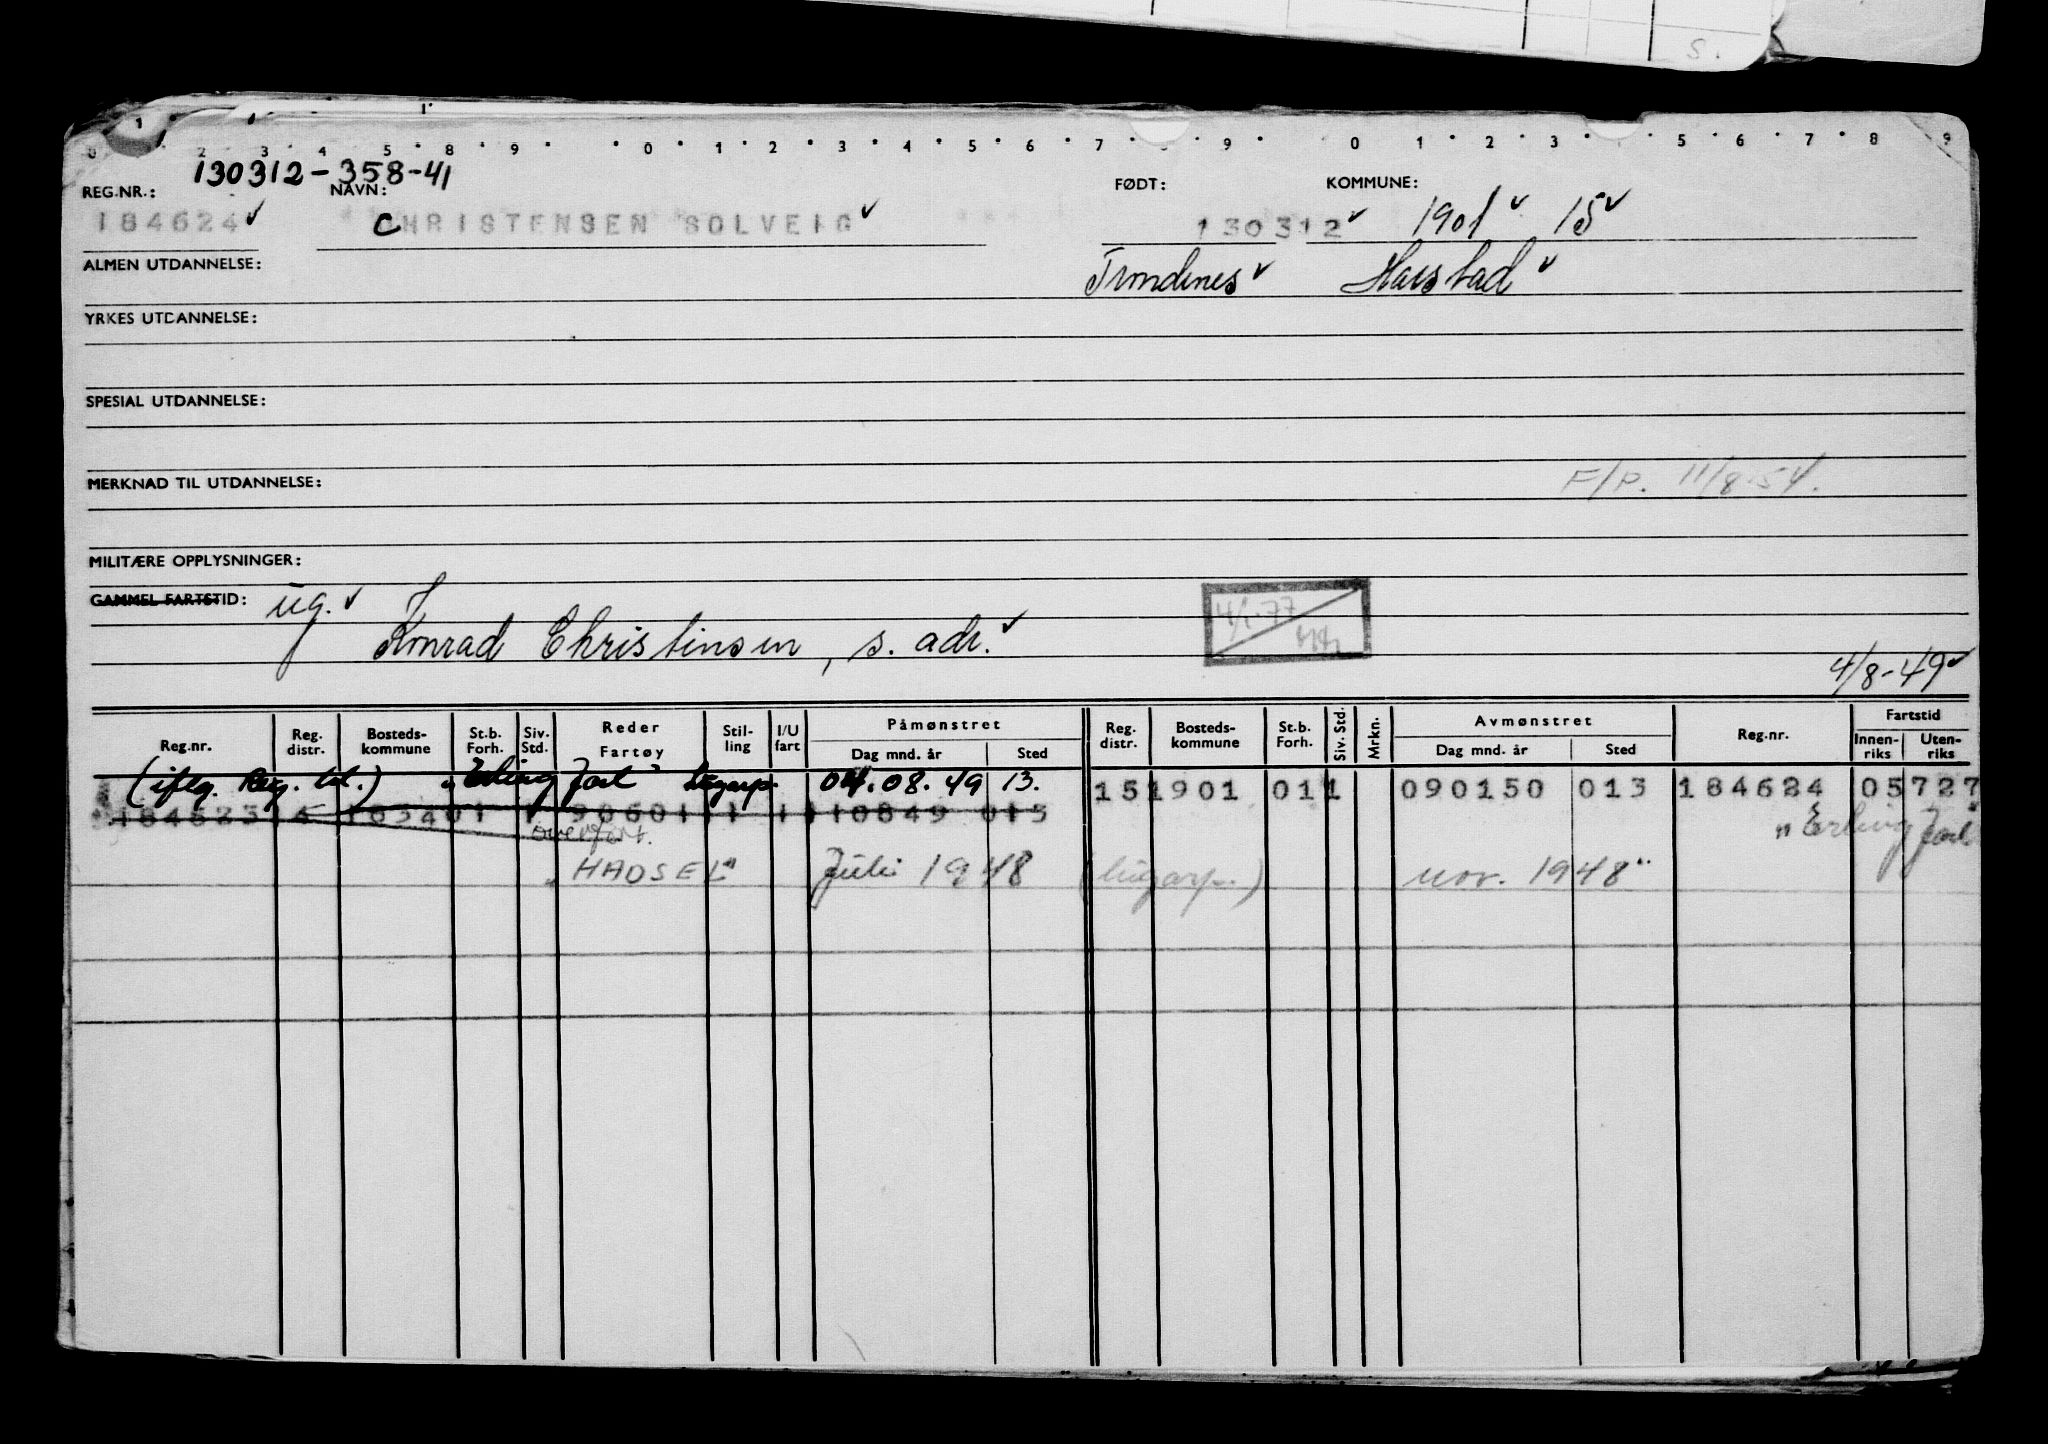 S.
1
0 2 3 4 5 8 9 0 1 2 3 4 5 6 7 9 0 1 2 3 5 6 7 8 9
130312-358-41
REG.NR.: NAVN: FØDT: KOMMUNE:
184624 ✓ CHRISTENSEN SOLVEIG ✓ 130312 ✓ 1901 ✓ 15 ✓
ALMEN UTDANNELSE: Trondenes ✓ Harstad ✓
YRKES UTDANNELSE:
SPESIAL UTDANNELSE:
MERKNAD TIL UTDANNELSE: F/P. 11/8-54.
MILITÆRE OPPLYSNINGER:
GAMMEL FARTSTID: ug. ✓
Konrad Christensen, s. adr. ✓
4/1.77
4/8-49 ✓
Reg.nr. Reg. distr. Bosteds-kommune St.b. Forh. Siv. Std. Reder Fartøy Stil-ling I/U fart Påmønstret Dag mnd. år Sted Reg. distr. Bosteds-kommune St.b. Forh. Siv. Std. Mrkn. Avmønstret Dag mnd. år Sted Reg.nr. Fartstid Innen-riks Uten-riks
(iflg. Reg. til.) "Erling Jarl" lugarp. 04.08.49 13. 15 1901 01 1 090150 013 184624 05 727
184623 4 103401 1 90601 1 1 110849 013 "Erling Jarl"
overført.
"HADSEL" Juli 1948 (lugarp.) nov. 1948"